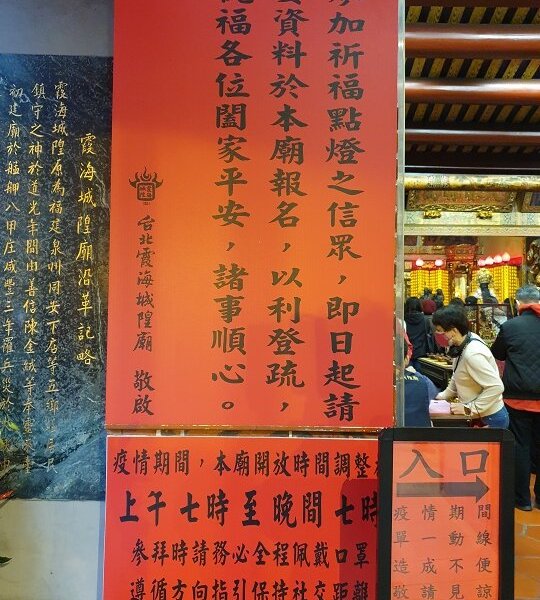 加祈福點燈之信眾，即日起請
資料於本廟報名，以利登疏，
福各位闔家平安，諸事順心。
台北霞海城隍廟 敬啟
霞海城隍廟沿革記略
霞海城隍原為福建泉州同安下店
鎮守之神於道光年間由善信陳金絨等奉
初建廟於艋舺八甲庄咸豐三年罹兵災
疫情期間，本廟開放時間調整
上午七時至晚間七時
參拜時請務必全程佩戴口罩
遵循方向指引保持社交距離
入口
疫情期間
單一動線
造成不便
敬請見諒